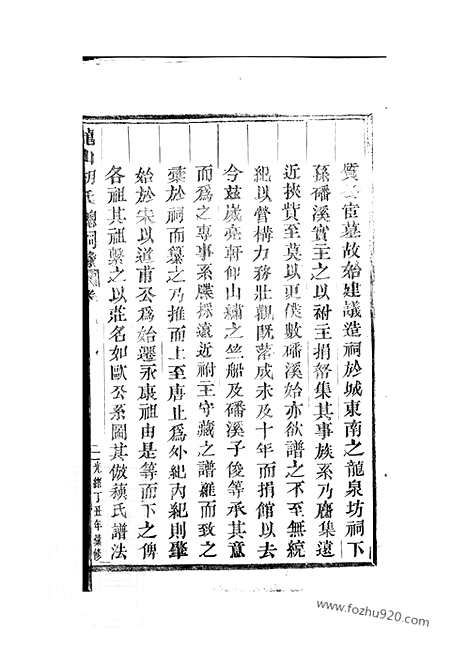 質言宦墓故始建議造祠於城東南之龍泉坊祠下
孫磻溪實主之以祔主捐帑集其事族系乃麕集遠
近挾貲至莫以更僕數磻溪始亦欲譜之不至無統
紀以督構力務壯觀既落成未及十年而捐館以去
今茲嵗亮軒仰山繡之竺船及磻溪子俊等承其意
而為之專事系牒採遠近祔主守藏之譜雜而致之
彙於祠而纂之乃推而上至唐止為外紀内紀則肇
始於宋以道甫公為始遷永康祖由是等而下之俾
各祖其祖繫之以莊名如歐公系圖其倣蘋氏譜法
龍山胡氏總祠譜 卷 二 光緒丁丑年纂修
www.fozhu920.com